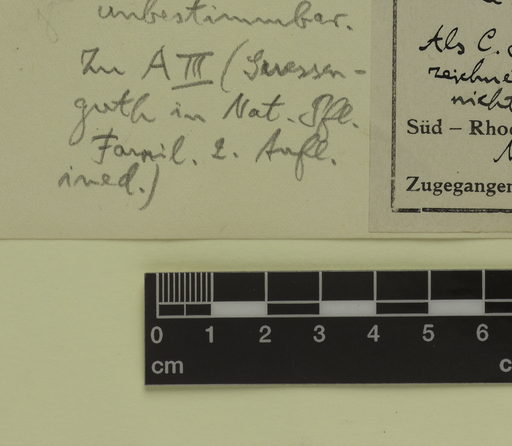 unbestimmbar.
Zu A III (Suessen-
guth in Nat. Pfl.
Famil. 2. Aufl.
ined.)
Als C.
zeichne
nicht
Süd – Rhod
Zugegangen
0 1 2 3 4 5 6
cm c